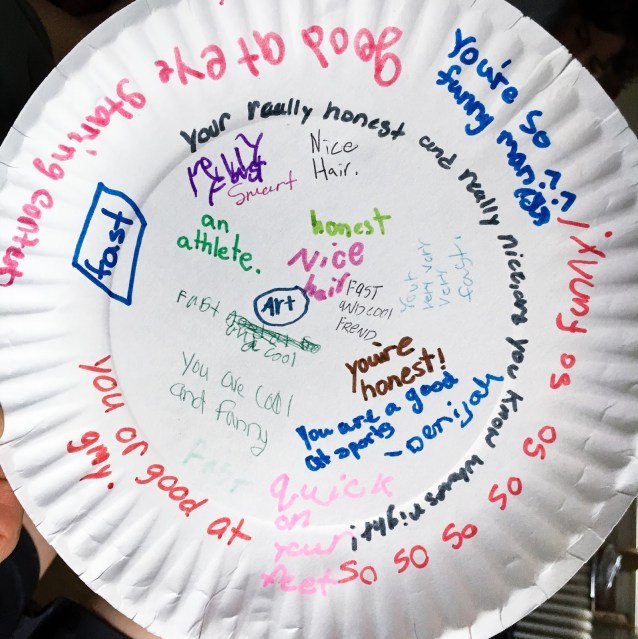 good at eye staring contest
You're so
funny man
Your really honest and really nice and you know whats right!
Smart
Nice
Hair.
an
athlete.
honest
Nice
hair
fast
Art
FAST
AND COOL
FREND
Your
very very
very
fast.
FAST
and cool
you're
honest!
You are cool
and funny
You are a good
at sports
~Denijah
Fast
quick
on
your
feet
You or good at
gmy.
So so so so so so so funny!